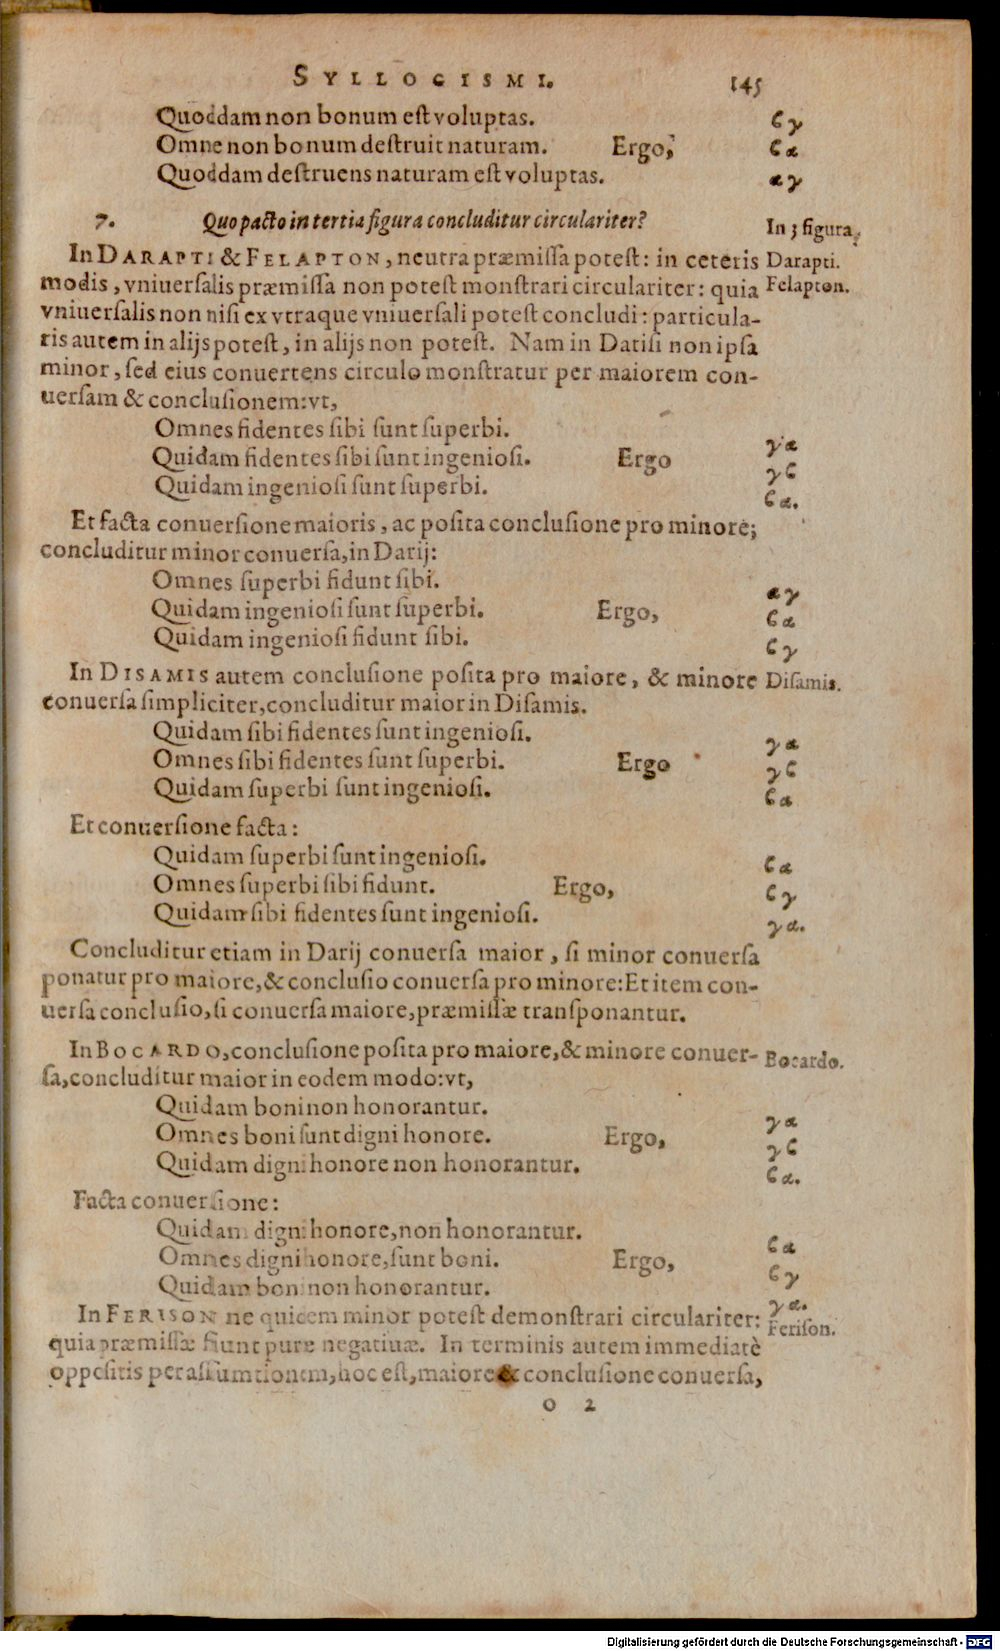 SYLLOGISMI. 145
Quoddam non bonum est voluptas. ϐ γ
Omne non bonum destruit naturam. Ergo, ϐ α
Quoddam destruens naturam est voluptas. α γ
7. Quo pacto in tertia figura concluditur circulariter? In 3 figura.
In DARAPTI & FELAPTON, neutra præmissa potest: in ceteris Darapti.
modis, vniuersalis præmissa non potest monstrari circulariter: quia Felapton.
vniuersalis non nisi ex vtraque vniuersali potest concludi: particula-
ris autem in alijs potest, in alijs non potest. Nam in Datisi non ipsa
minor, sed eius conuertens circulo monstratur per maiorem con-
uersam & conclusionem: vt,
Omnes fidentes sibi sunt superbi. γ α
Quidam fidentes sibi sunt ingeniosi. Ergo γ ϐ
Quidam ingeniosi sunt superbi. ϐ α.
Et facta conuersione maioris, ac posita conclusione pro minore;
concluditur minor conuersa, in Darij:
Omnes superbi fidunt sibi. α γ
Quidam ingeniosi sunt superbi. Ergo, ϐ α
Quidam ingeniosi fidunt sibi. ϐ γ
In DISAMIS autem conclusione posita pro maiore, & minore Disamis.
conuersa simpliciter, concluditur maior in Disamis.
Quidam sibi fidentes sunt ingeniosi. γ α
Omnes sibi fidentes sunt superbi. Ergo γ ϐ
Quidam superbi sunt ingeniosi. ϐ α
Et conuersione facta:
Quidam superbi sunt ingeniosi. ϐ α
Omnes superbi sibi fidunt. Ergo, ϐ γ
Quidam sibi fidentes sunt ingeniosi. γ α.
Concluditur etiam in Darij conuersa maior, si minor conuersa
ponatur pro maiore, & conclusio conuersa pro minore: Et item con-
uersa conclusio, si conuersa maiore, præmissæ transponantur.
In BOCARDO, conclusione posita pro maiore, & minore conuer- Bocardo.
sa, concluditur maior in eodem modo: vt,
Quidam boni non honorantur. γ α
Omnes boni sunt digni honore. Ergo, γ ϐ
Quidam digni honore non honorantur. ϐ α.
Facta conuersione:
Quidam digni honore, non honorantur. ϐ α
Omnes digni honore, sunt boni. Ergo, ϐ γ
Quidam boni non honorantur. γ α.
In FERISON ne quidem minor potest demonstrari circulariter: Ferison.
quia præmissæ fiunt pure negatiuæ. In terminis autem immediatè
oppositis per assumtionem, hoc est, maiore & conclusione conuersa,
O 2
Digitalisierung gefördert durch die Deutsche Forschungsgemeinschaft - DFG